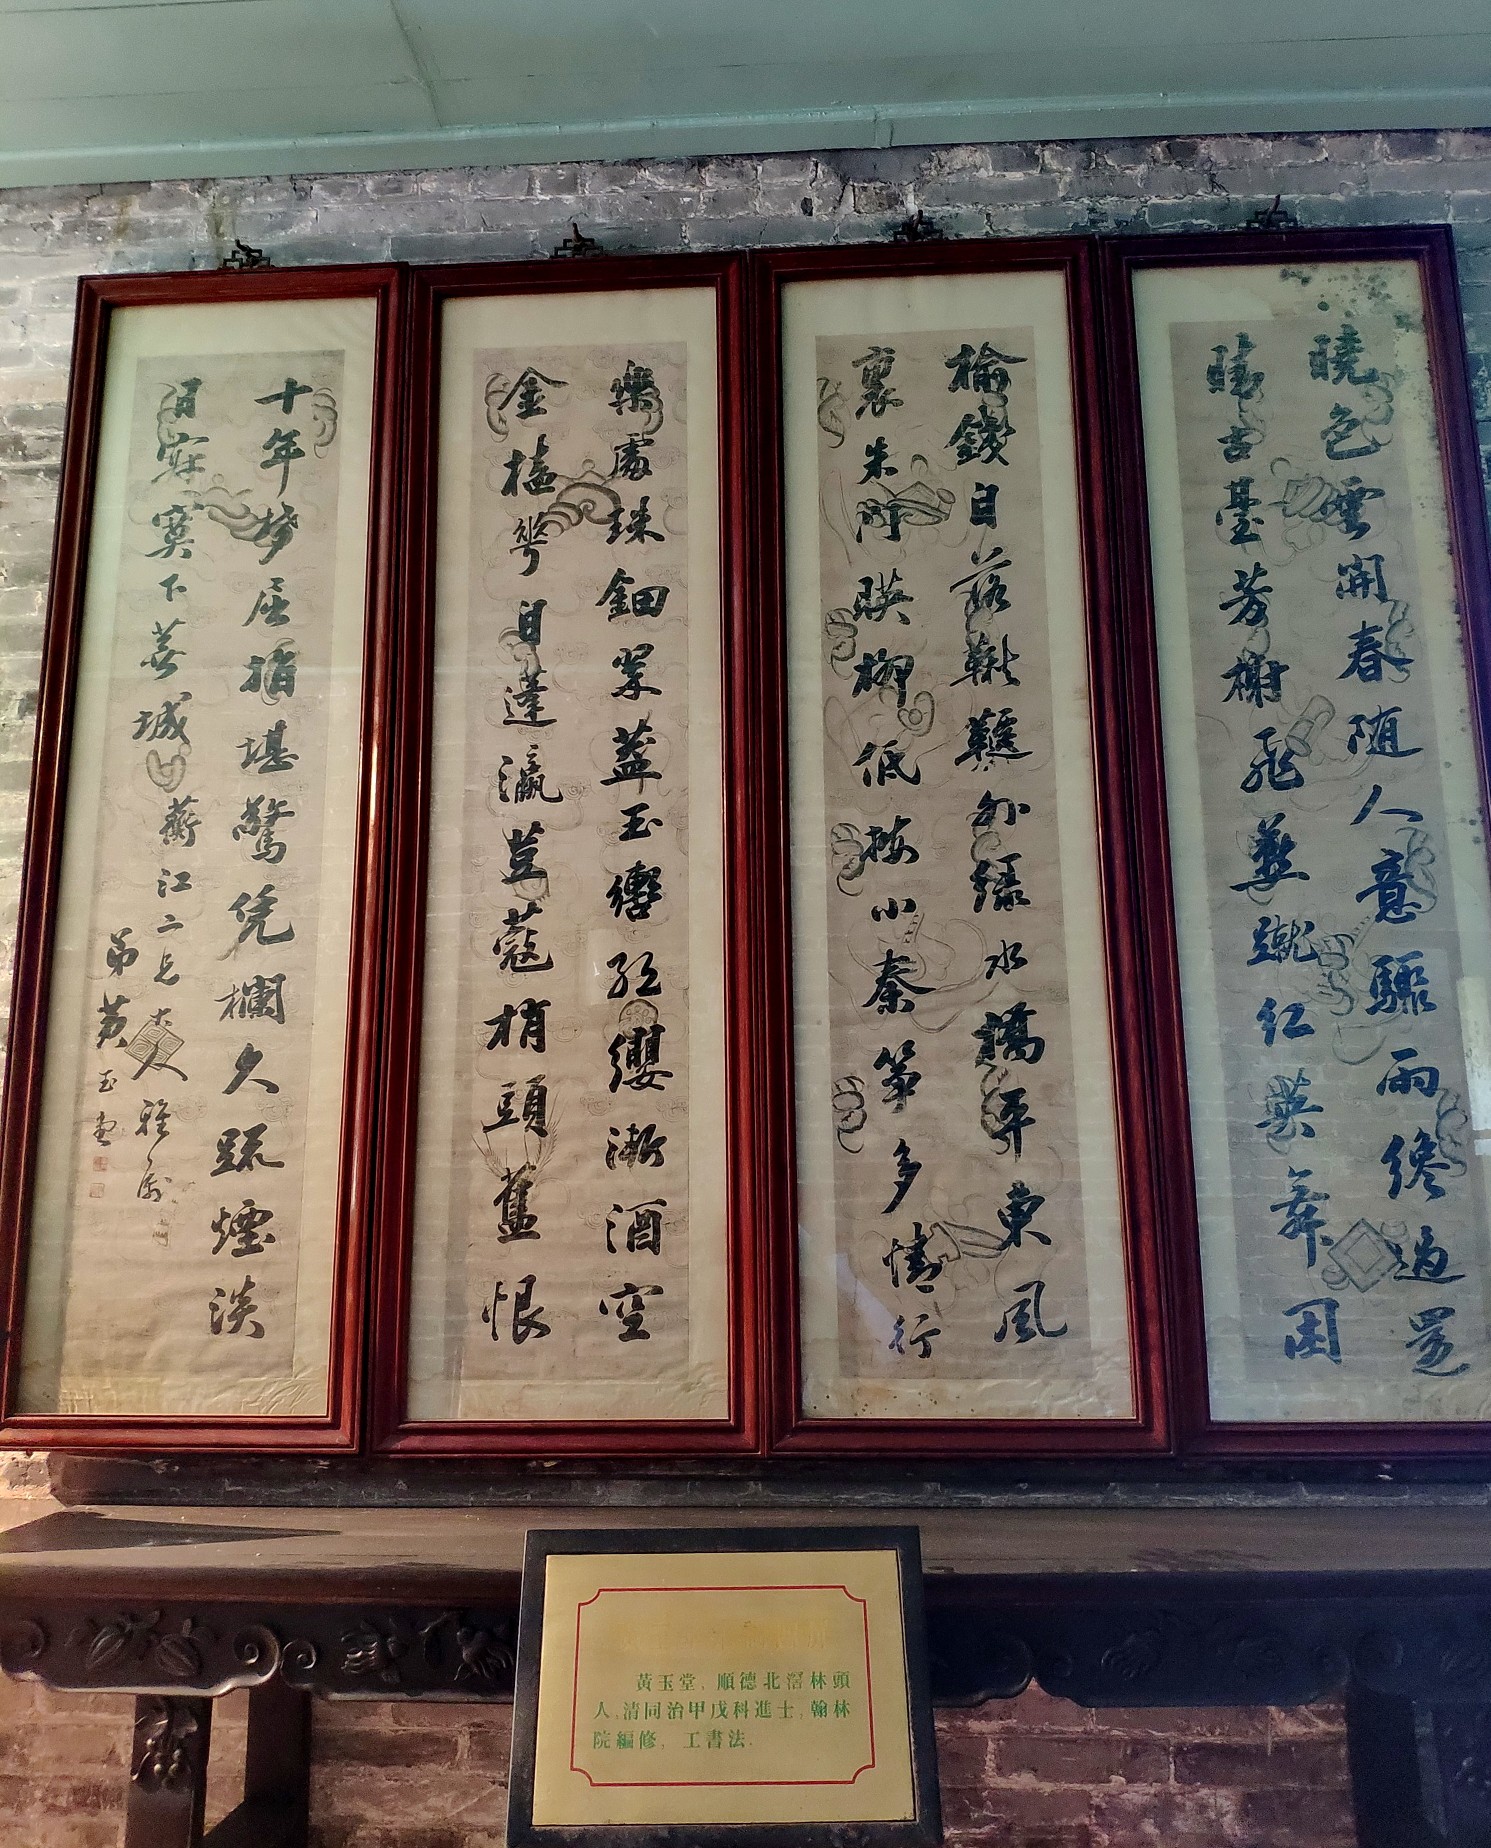 曉色雲開春随人意驟雨纔過還
晴古臺芳榭飛燕蹴紅舞困
榆錢自落鞦韆外緑水橋平東風
裏朱門暎柳低按小秦箏多情行
樂處珠鈿翠蓋玉轡紅纓漸酒空
金榼花困蓬瀛荳蔻梢頭舊恨
十年夢屈指堪驚凭欄久疏煙淡
日寂寞下蕪城 蘅江二兄大人雅属
弟黄玉堂
黃玉堂，順德北滘林頭
人，清同治甲戊科進士，翰林
院編修，工書法．